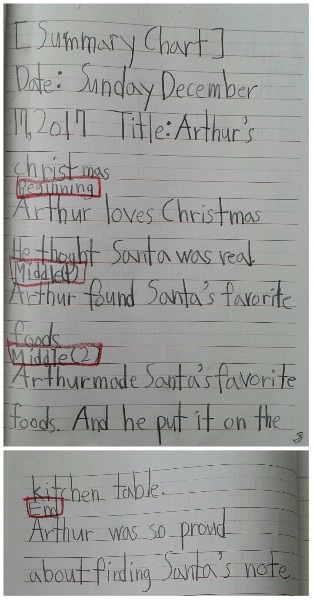 [Summary Chart]
Date: Sunday December
17, 2017 Title: Arthur's
christmas
Beginning
Arthur loves Christmas
He thoght Santa was real.
Middle(1)
Arthur found Santa's favorite
foods
Middle(2)
Arthur made Santa's favorite
foods. And he put it on the
kitchen table.
End
Arthur was so proud
about finding Santa's note.